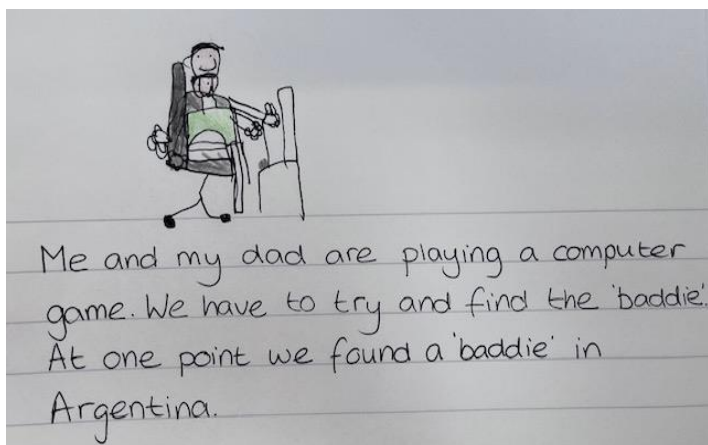 Me and my dad are playing a computer
game. We have to try and find the 'baddie'.
At one point we found a 'baddie' in
Argentina.